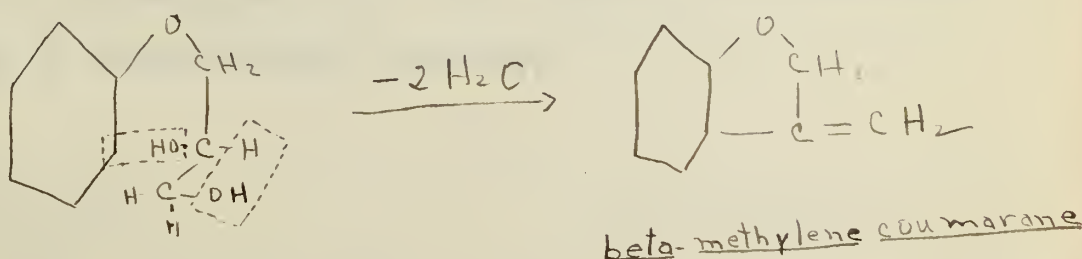 O
CH2
HO C - H
H - C - OH
H
- 2 H2O
O
CH
C = CH2
beta-methylene coumarane